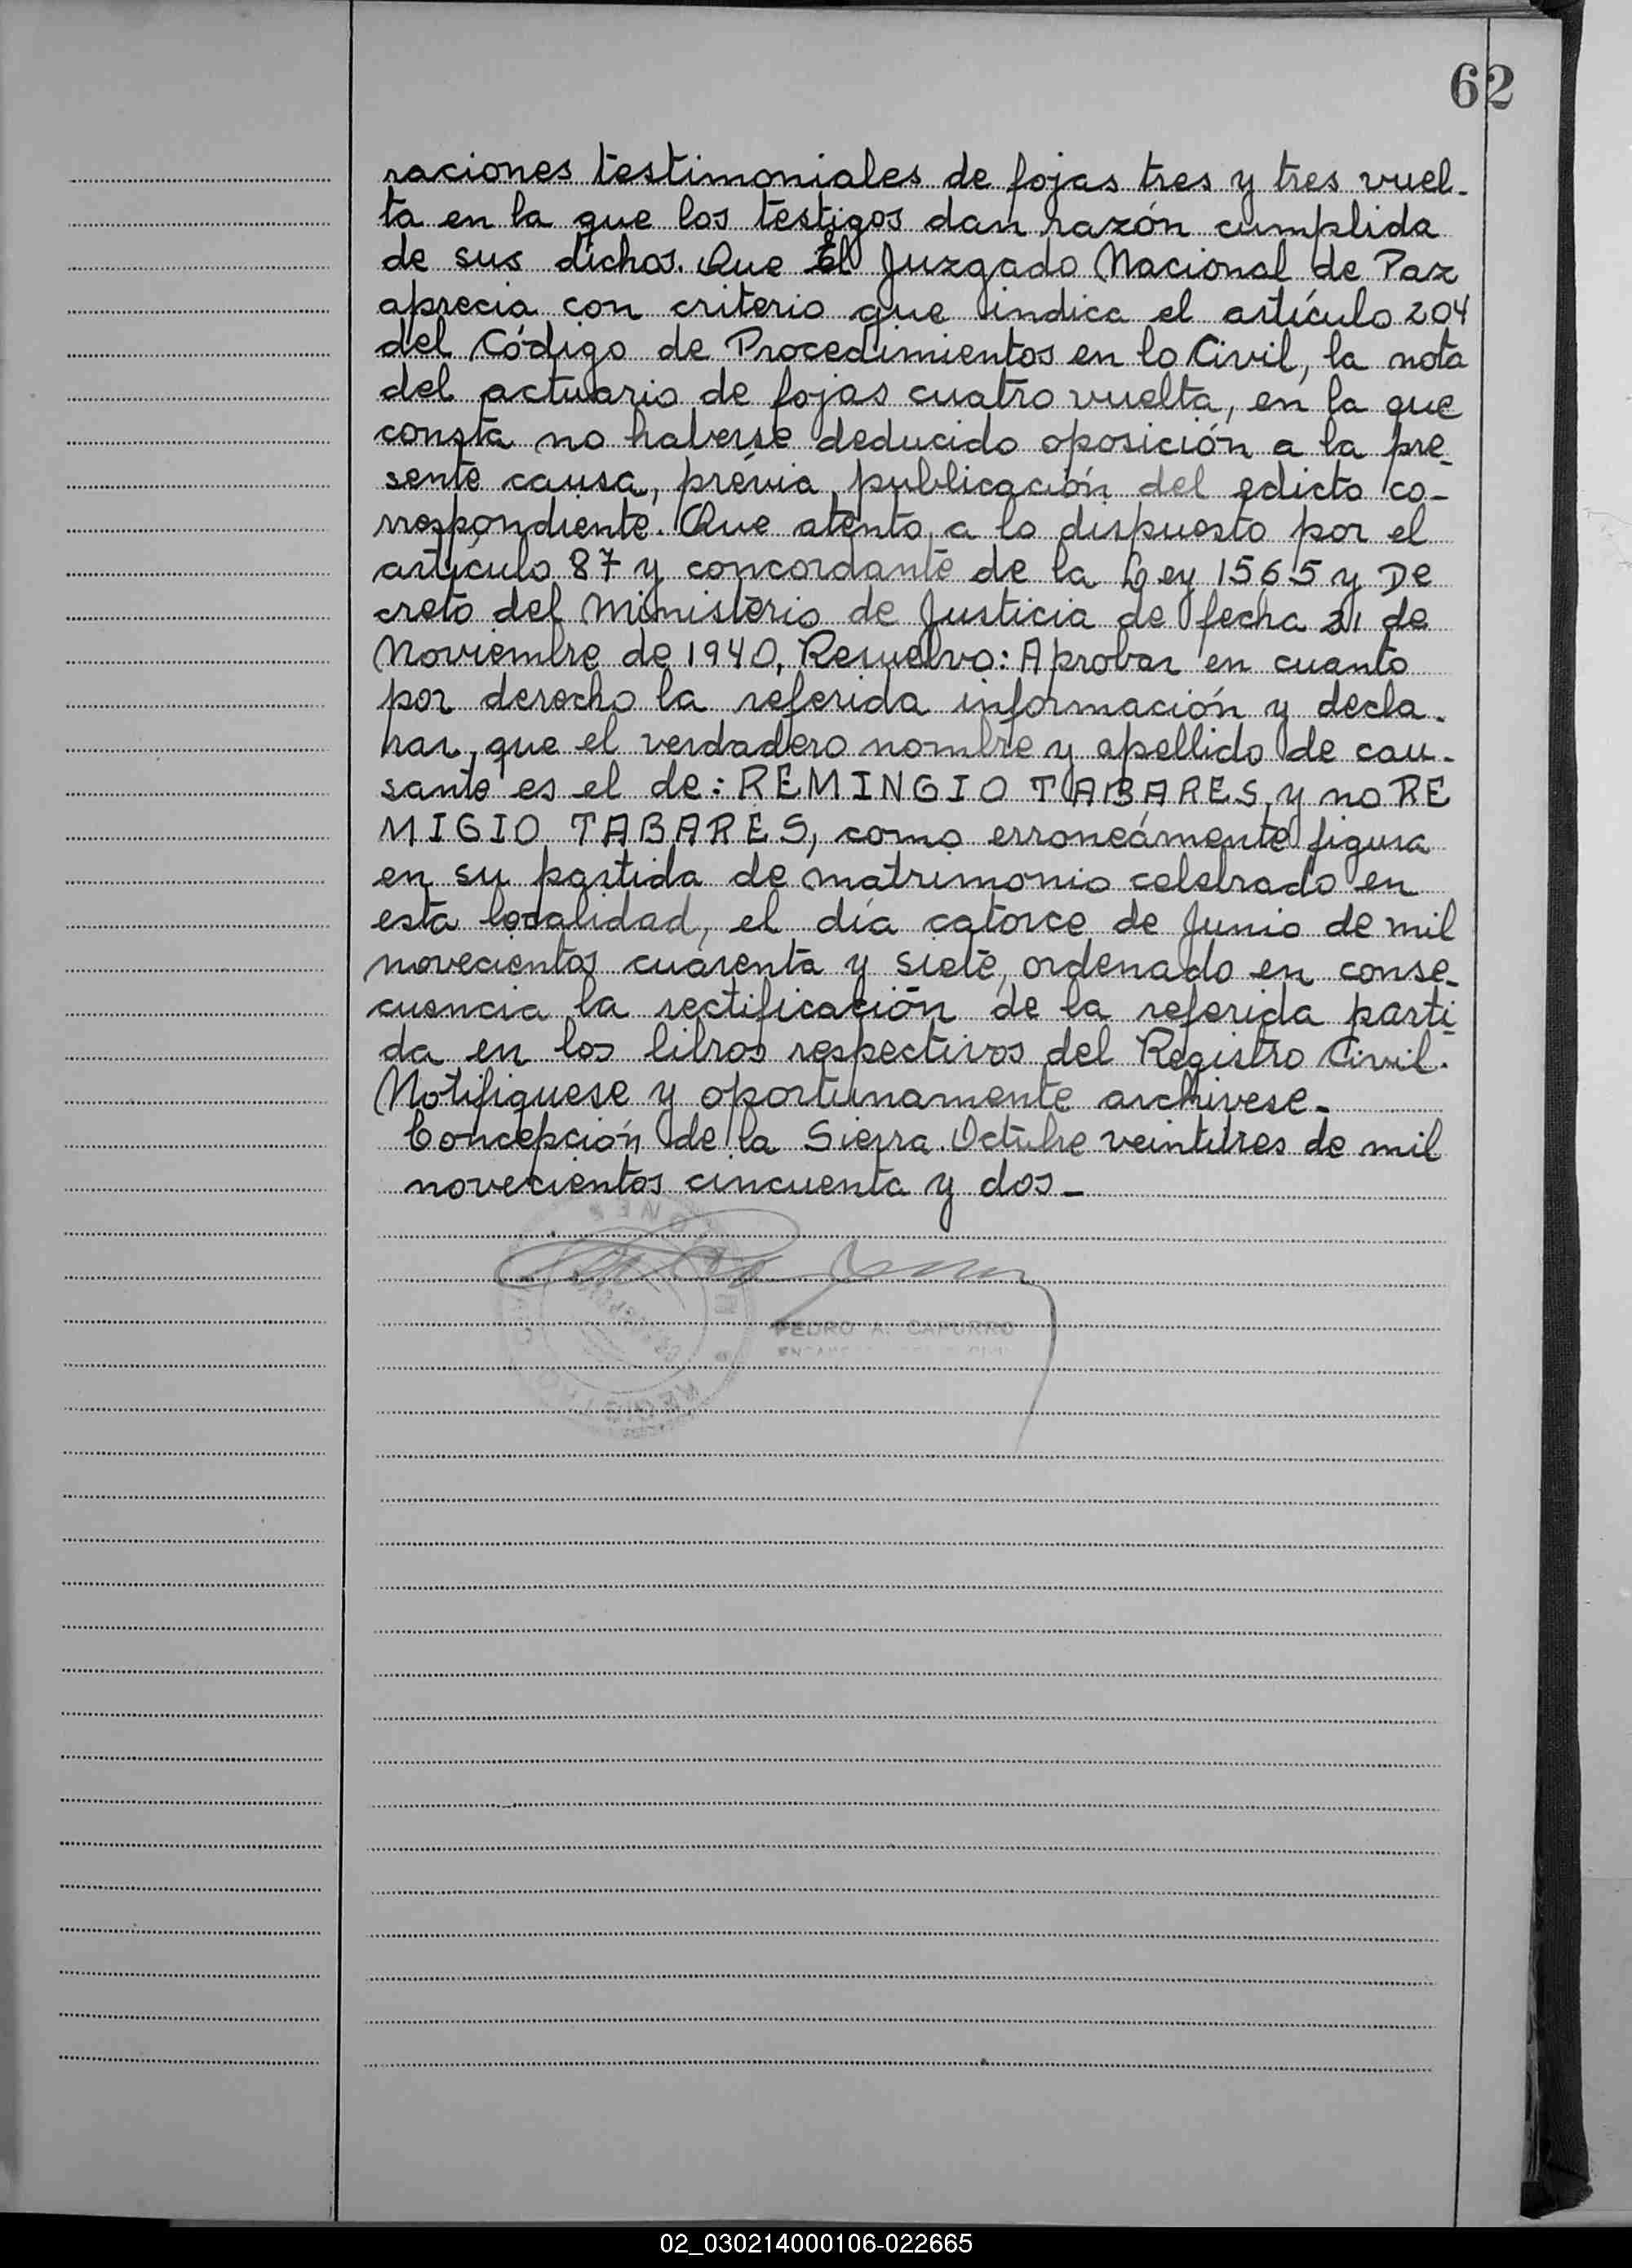 62
raciones testimoniales de fojas tres y tres vuel-
ta en la que los testigos dan razón cumplida
de sus dichos. Que El Juzgado Nacional de Paz
aprecia con criterio que indica el artículo 204
del Código de Procedimientos en lo Civil, la nota
del actuario de fojas cuatro vuelta, en la que
consta no haberse deducido oposición a la pre-
sente causa, prévia publicación del edicto co-
rrespondiente. Que atento a lo dispuesto por el
artículo 87 y concordante de la Ley 1565 y De
creto del Ministerio de Justicia de fecha 21 de
Noviembre de 1940, Resuelvo: Aprobar en cuanto
por derecho la referida información y decla-
rar, que el verdadero nombre y apellido de cau-
sante es el de: REMINGIO TABARES, y no RE
MIGIO TABARES, como erroneámente figura
en su partida de matrimonio celebrado en
esta localidad, el día catorce de Junio de mil
novecientos cuarenta y siete, ordenado en conse-
cuencia la rectificación de la referida parti-
da en los libros respectivos del Registro Civil.
Notifiquese y oportunamente archivese-
Concepción de la Sierra. Octubre veintitres de mil
novecientos cincuenta y dos-
PEDRO A. CAPURRO
02_030214000106-022665